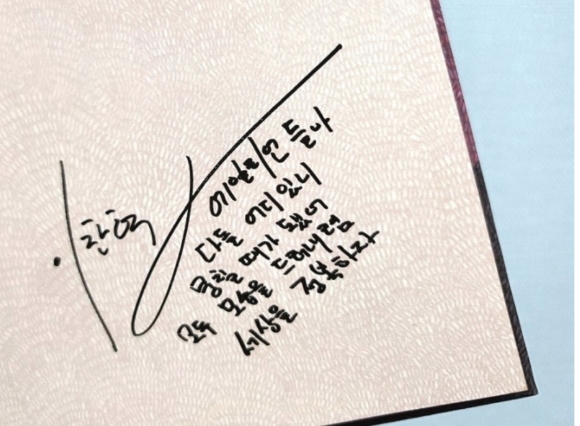 한혁
에일리언 들아
다들 어디있니
뭉칠 때가 됐어
모두 모습을 드러내렴
세상을 정복하자